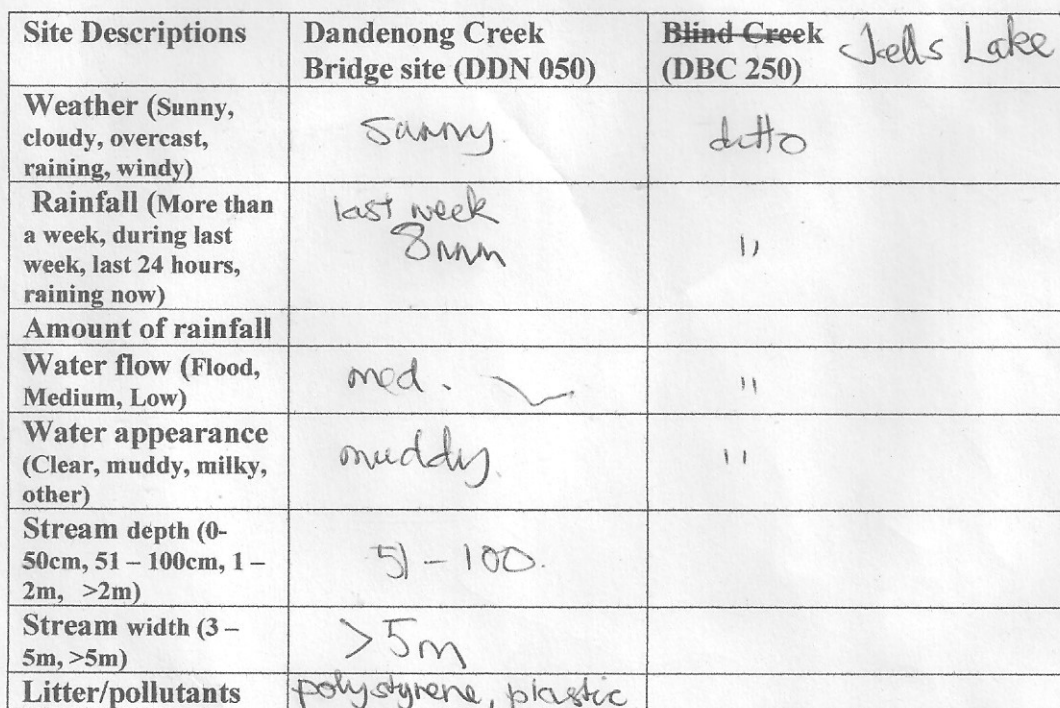 Site Descriptions
Dandenong Creek
Bridge site (DDN 050)
Blind Creek
(DBC 250)
Jells Lake
Weather (Sunny,
cloudy, overcast,
raining, windy)
Sunny.
ditto
Rainfall (More than
a week, during last
week, last 24 hours,
raining now)
last week
8mm
"
Amount of rainfall
Water flow (Flood,
Medium, Low)
med.
"
Water appearance
(Clear, muddy, milky,
other)
muddy.
"
Stream depth (0-
50cm, 51 – 100cm, 1 –
2m, >2m)
51 – 100.
Stream width (3 –
5m, >5m)
>5m
Litter/pollutants
polystyrene, plastic